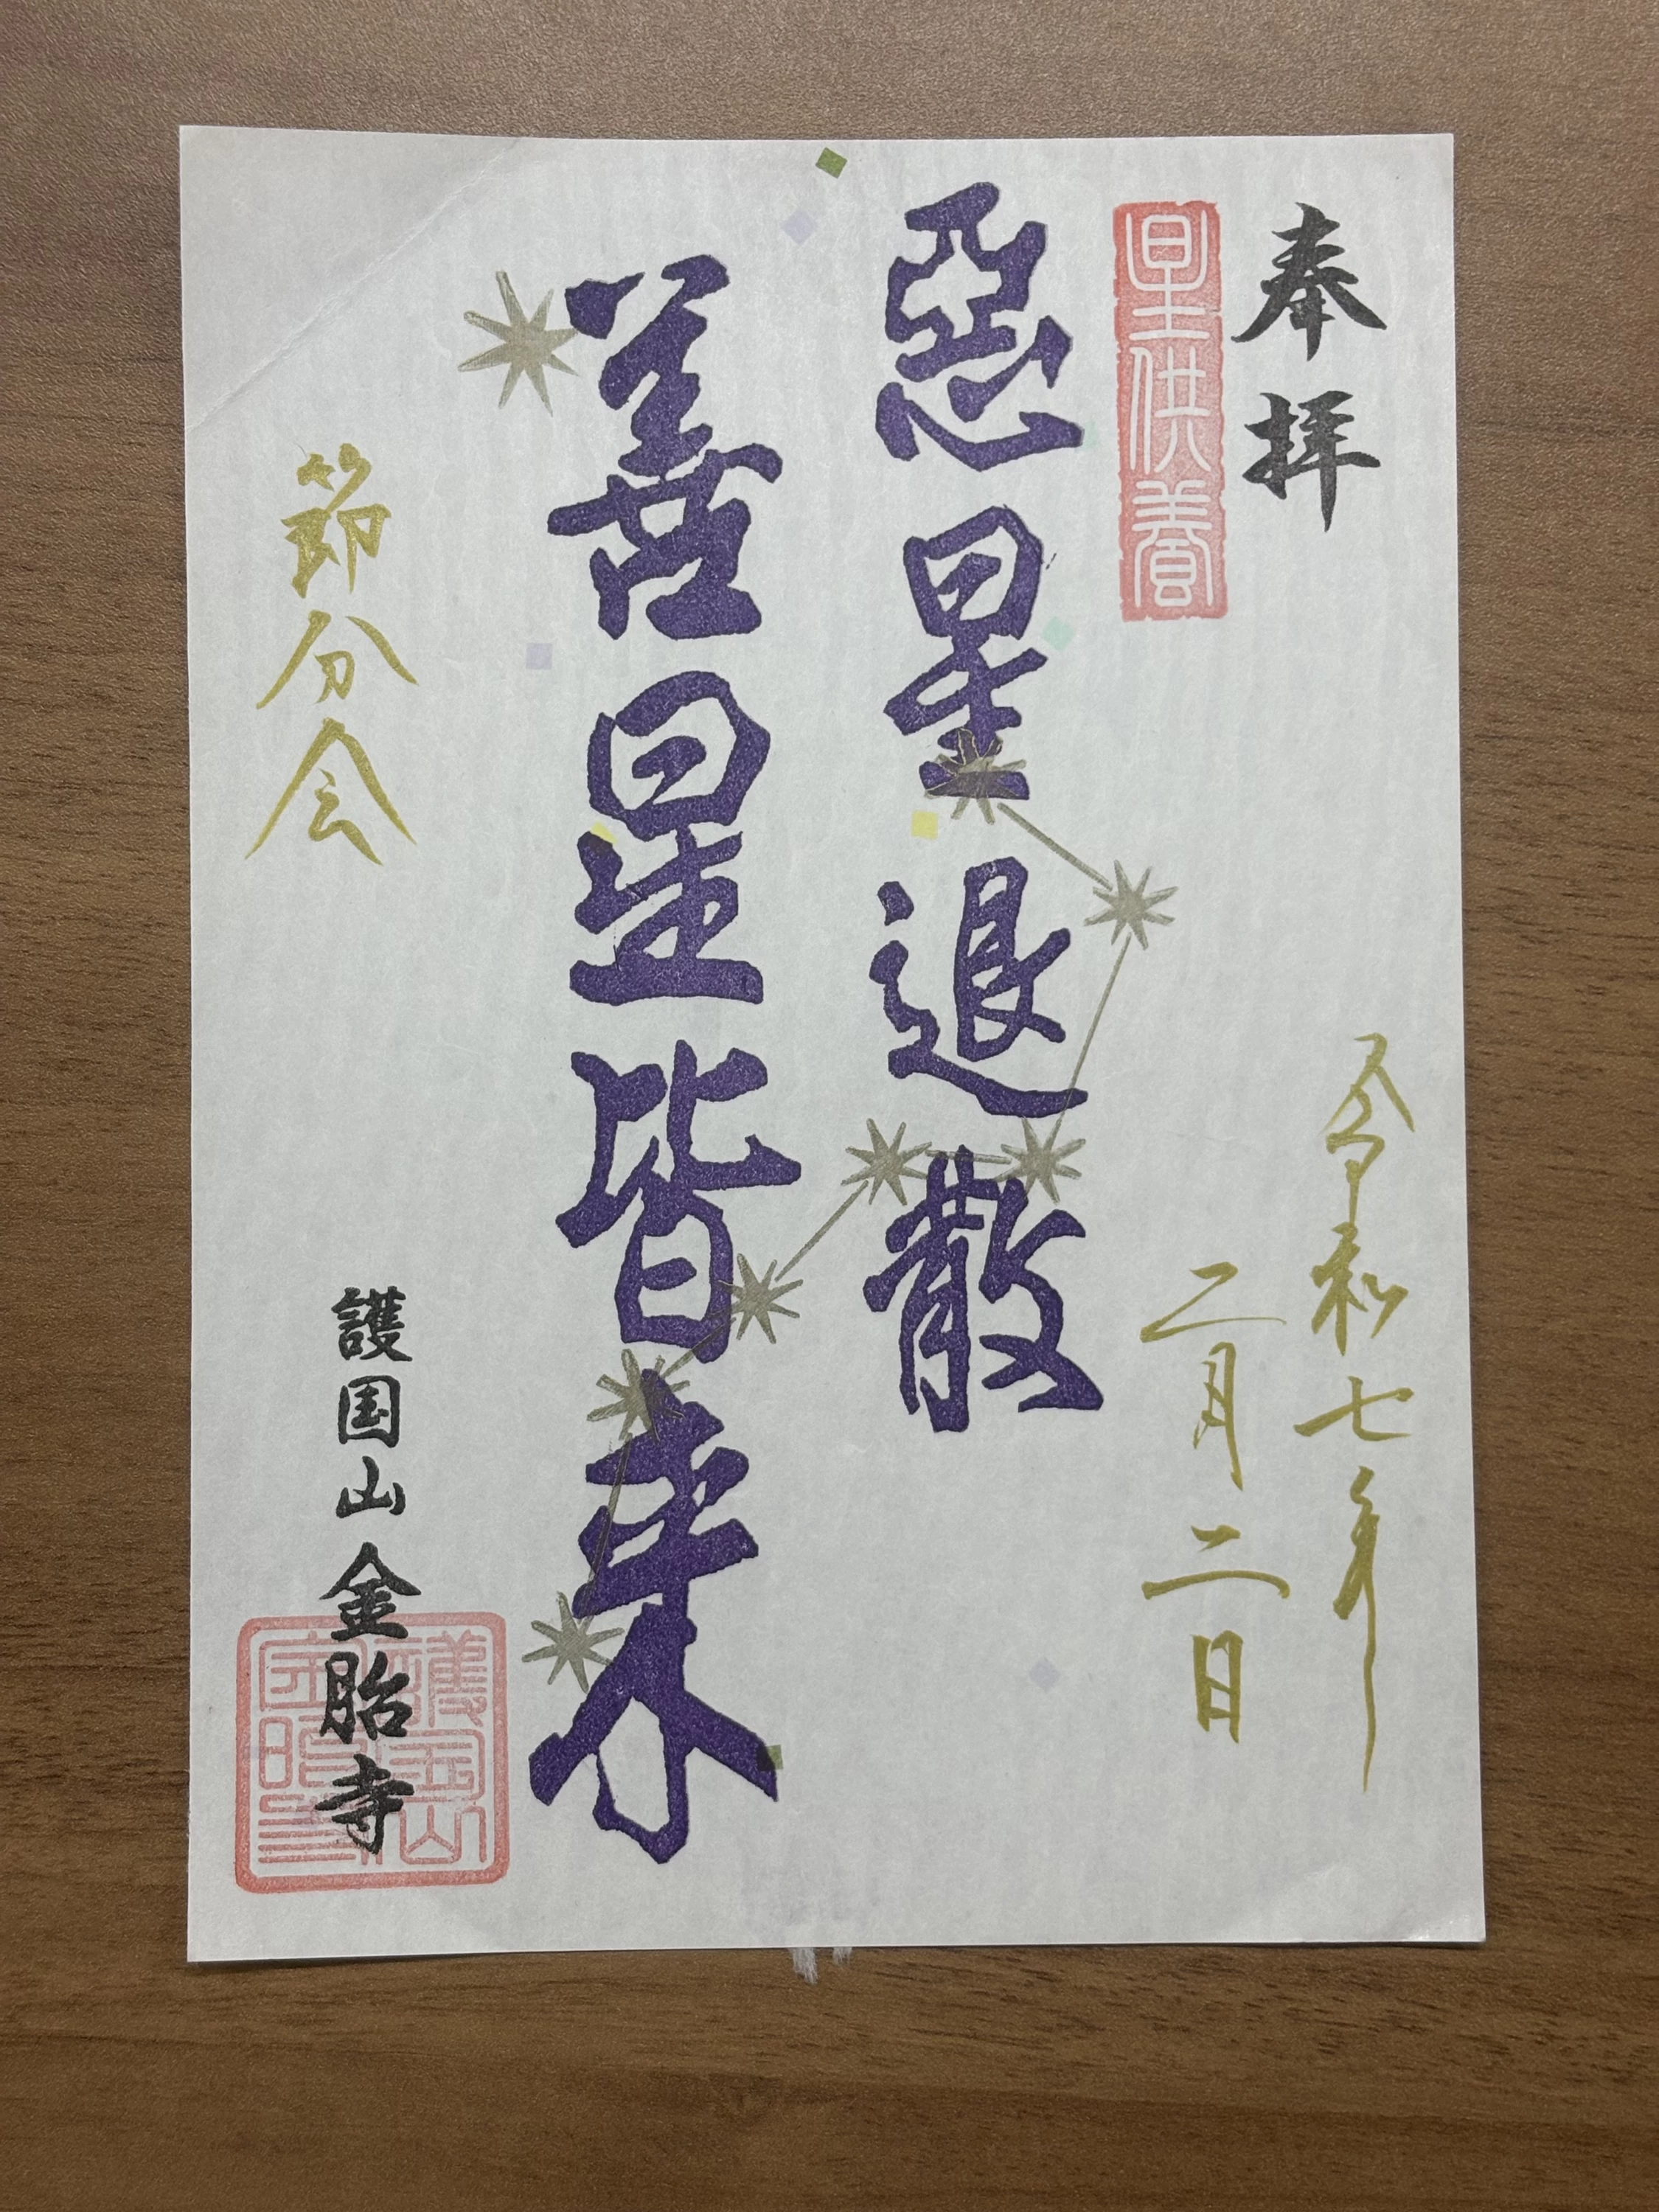 奉拝
星供養
令和七年
二月二日
惡星退散
善星皆来
節分会
護国山金胎寺
護国山
金胎寺